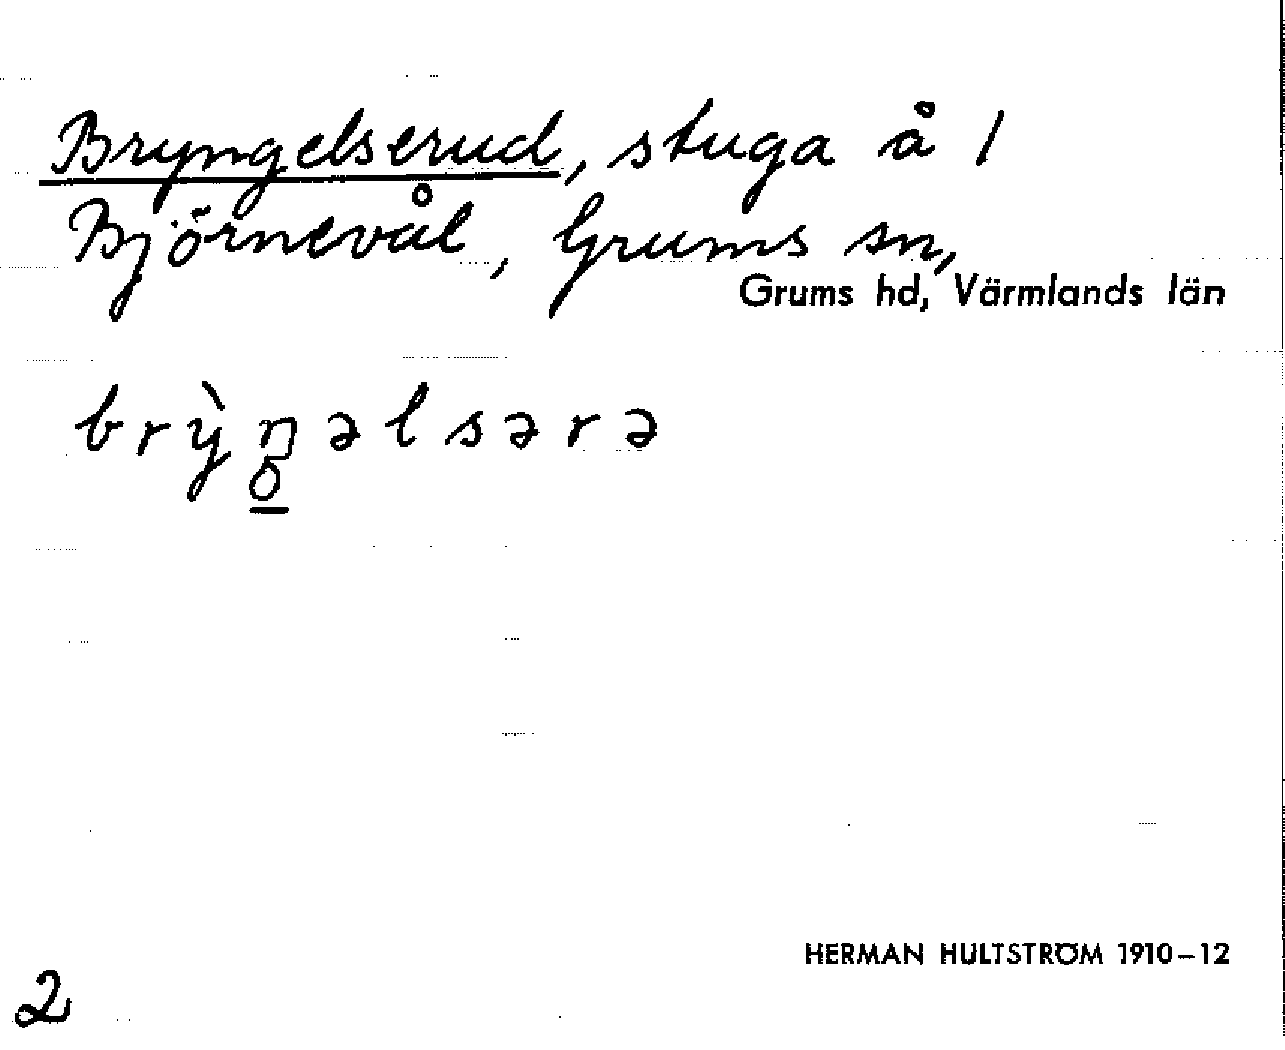 Bryngelserud, stuga å 1
Björnevål, Grums sn,
Grums hd, Värmlands län
brỳŋəlsərə
HERMAN HULTSTRÖM 1910–12
2